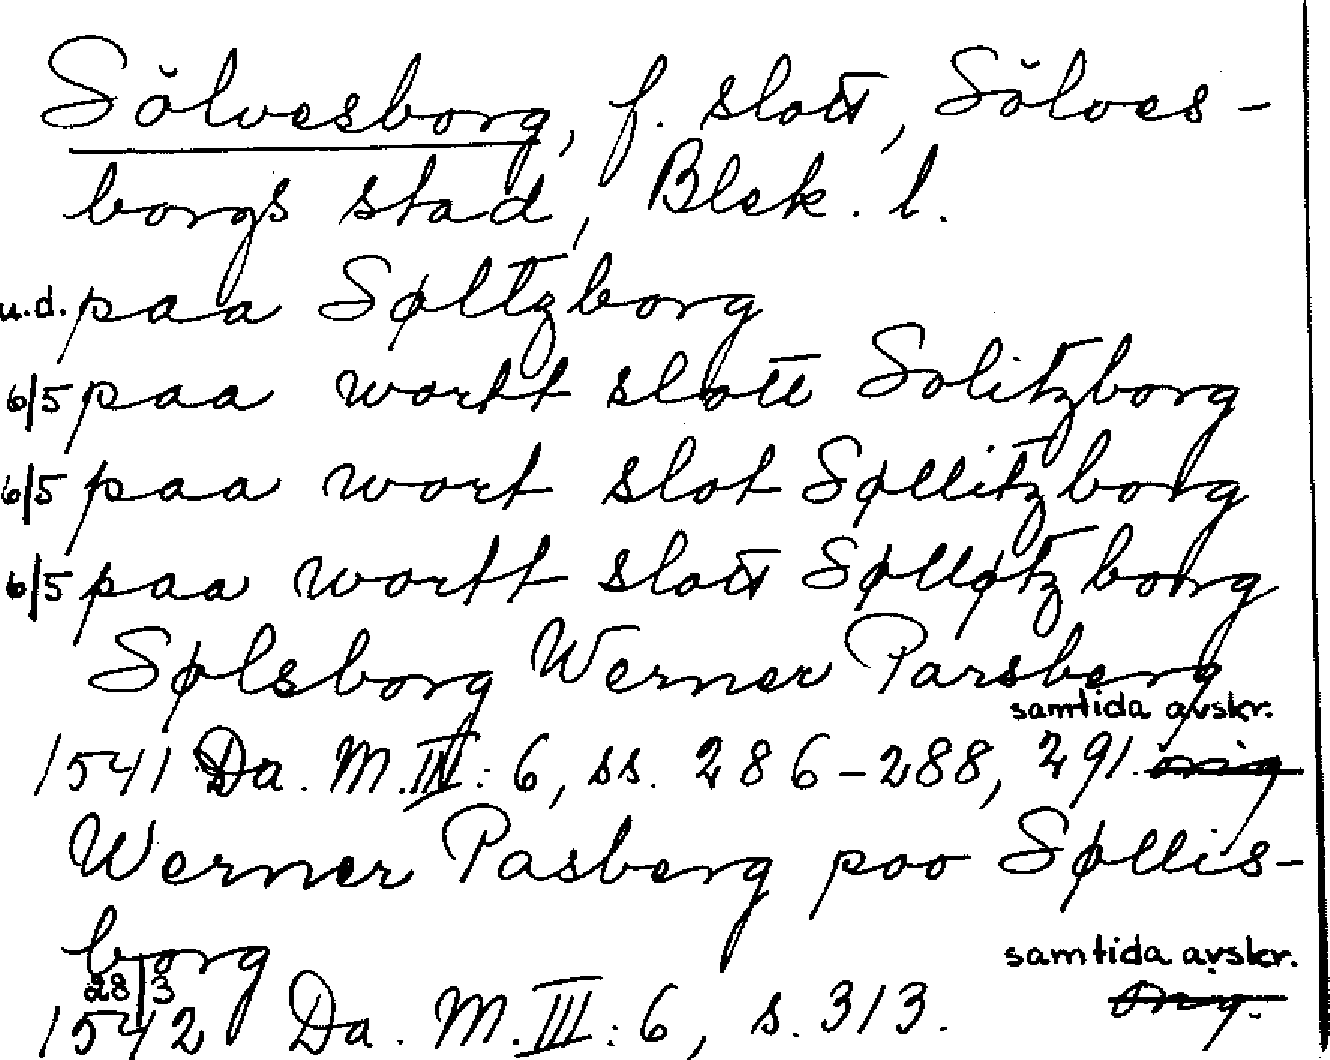 Sölvesborg, f. slott, Sölves-
borgs stad, Blek. l.
u.d. paa Søltzborg
6/5 paa wortt slott Solitzborg
6/5 paa wort slot Søllitzborg
6/5 paa wortt slottØlløtzborg
Sølsborg Werner Parsberg
samtida avskr.
1541 Da. M. III: 6, ss. 286-288, 291. orig
Werner Pasberg poo Søllis-
borg
samtida avskr.
28/3
1542 Da. M. III: 6, s. 313. orig.